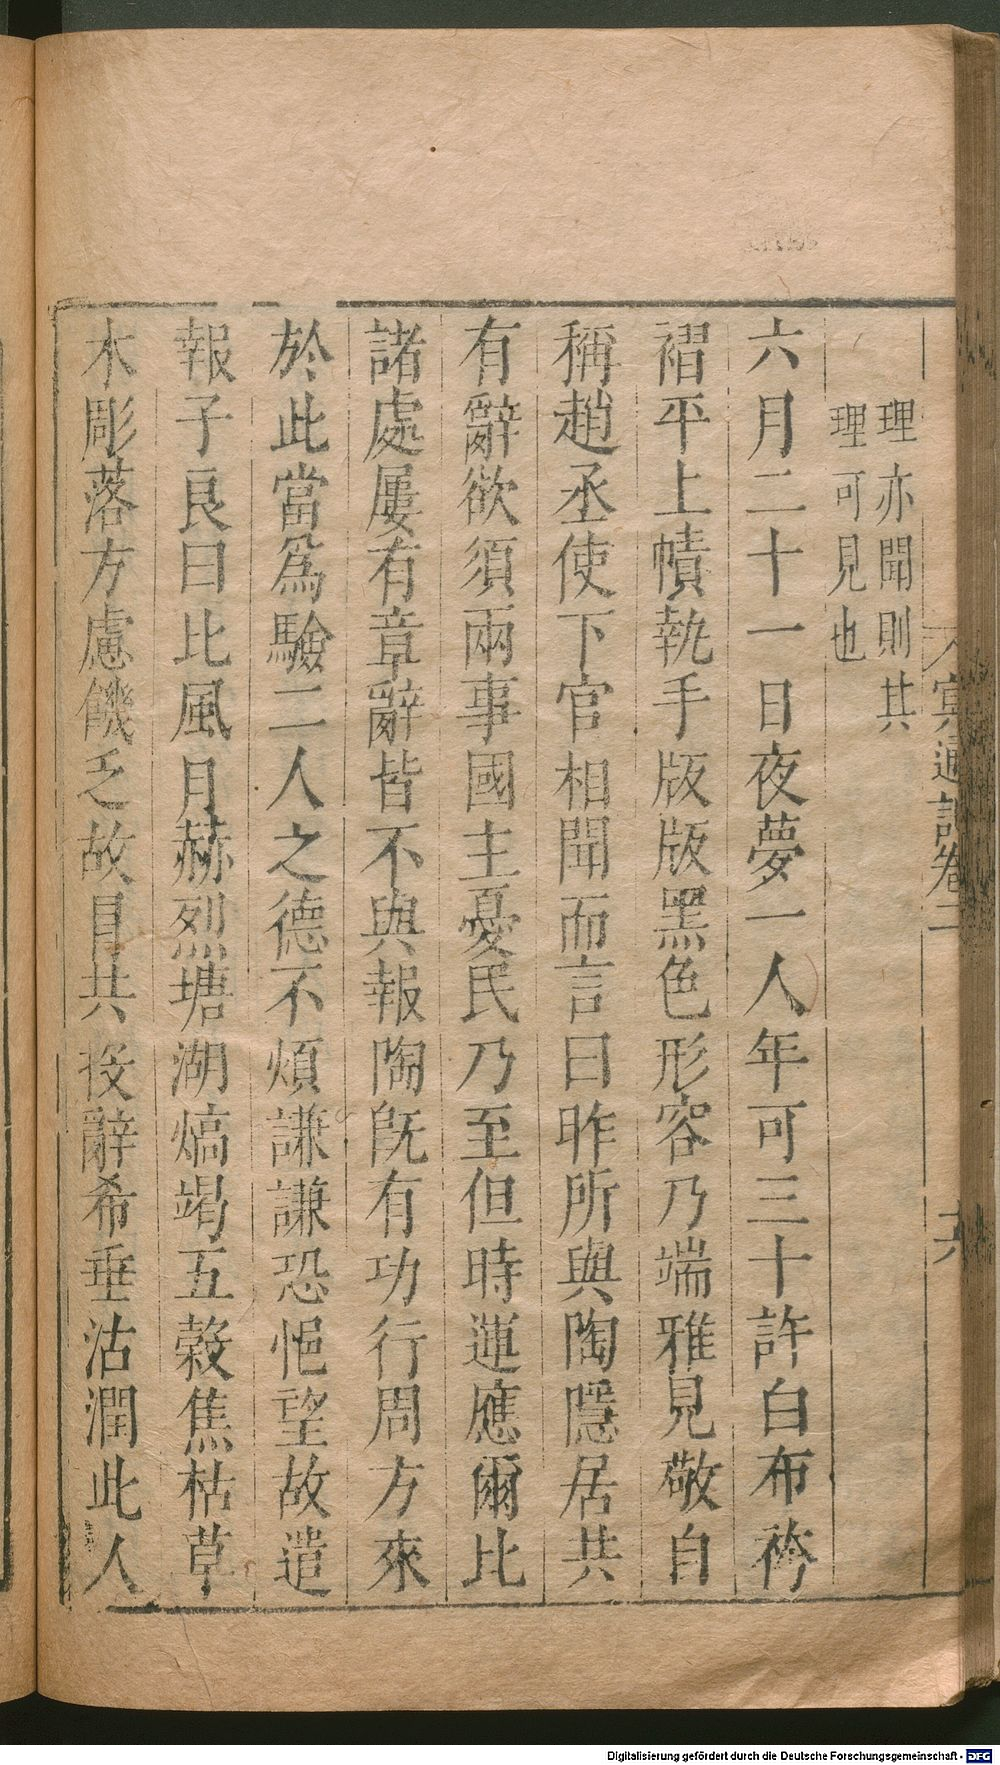 冥通記卷二
六
理亦聞則其
理可見也
六月二十一日夜夢一人年可三十許白布袴
褶平上幘執手版版黑色形容乃端雅見敬自
稱趙丞使下官相聞而言曰昨所與陶隱居共
有辭欲須兩事國主憂民乃至但時運應爾比
諸處屢有章辭皆不與報陶既有功行周方來
於此當爲驗二人之德不煩謙謙恐悒望故遣
報子良曰比風月赫烈塘湖熇竭五穀焦枯草
木彫落方慮饑乏故且共投辭希垂沾潤此人
Digitalisierung gefördert durch die Deutsche Forschungsgemeinschaft - DFG